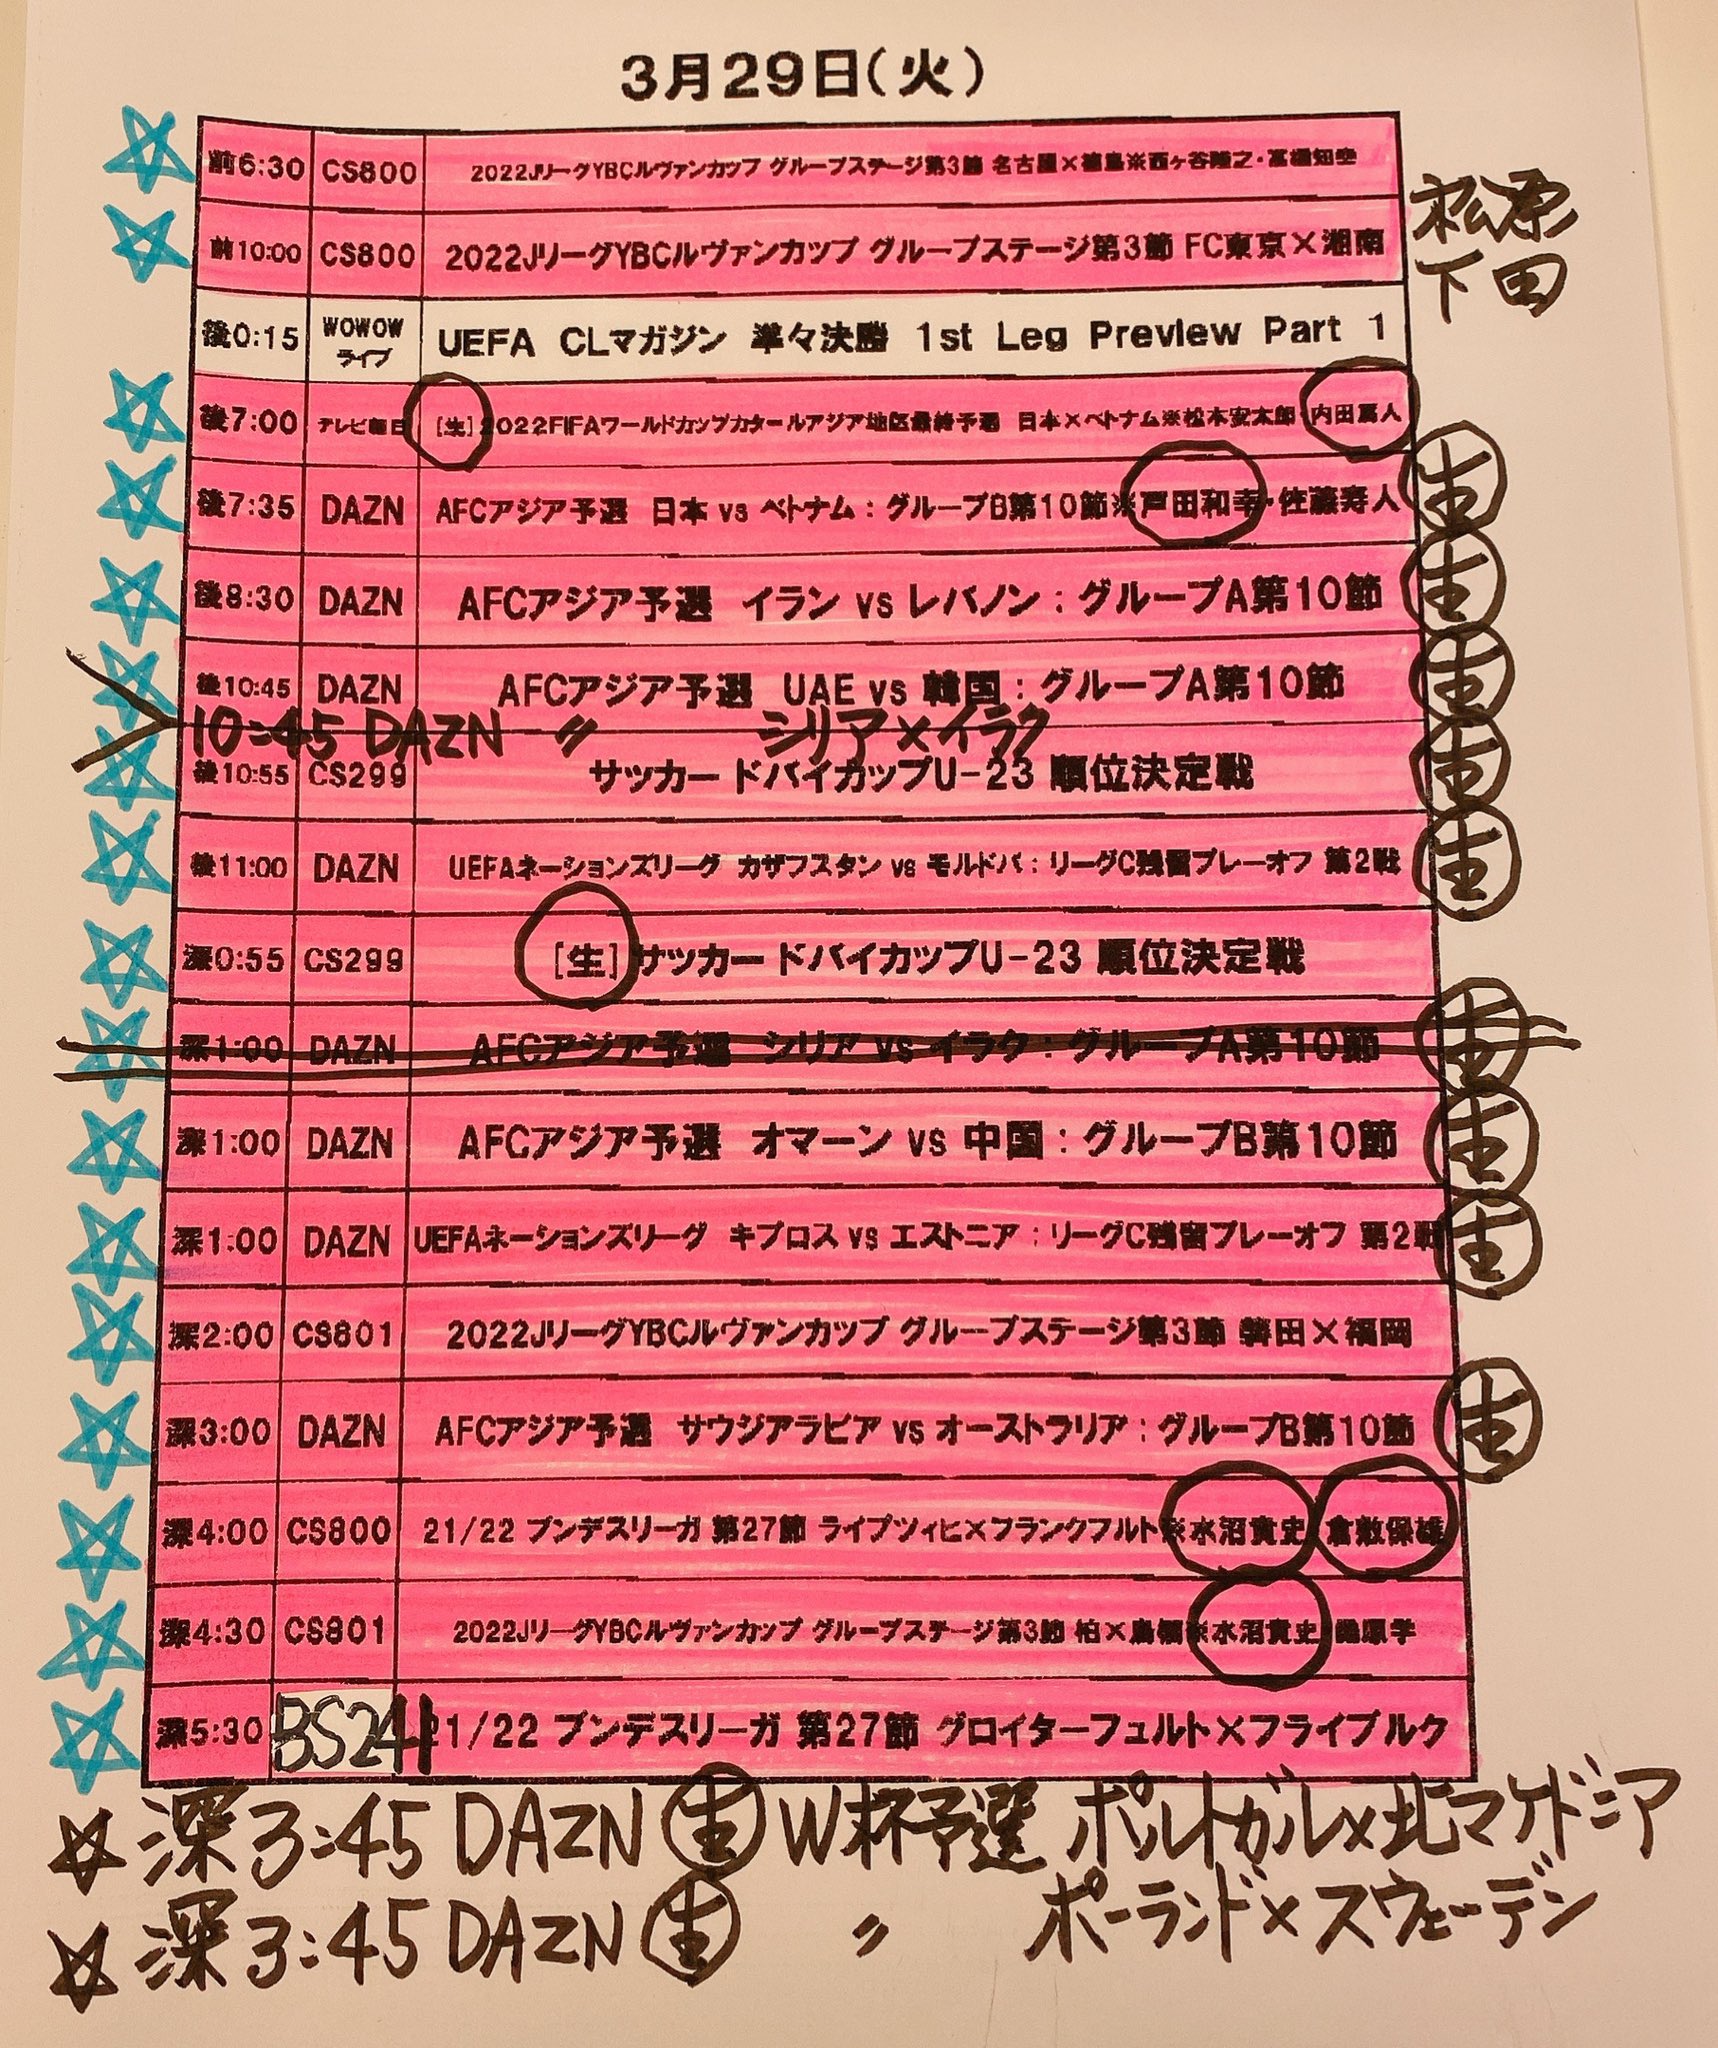 3月29日(火)
前6:30 CS800 2022JリーグYBCルヴァンカップ グループステージ第3節 名古屋×徳島※西ヶ谷隆之・富樫知幸
前10:00 CS800 2022JリーグYBCルヴァンカップ グループステージ第3節 FC東京×湘南 松原 下田
後0:15 WOWOWライブ UEFA CLマガジン 準々決勝 1st Leg Preview Part 1
後7:00 テレビ朝日 [生] 2022FIFAワールドカップカタールアジア地区最終予選 日本×ベトナム※松木安太郎・内田篤人
後7:35 DAZN AFCアジア予選 日本 vs ベトナム：グループB第10節※戸田和幸・佐藤寿人 生
後8:30 DAZN AFCアジア予選 イラン vs レバノン：グループA第10節 生
後10:45 DAZN AFCアジア予選 UAE vs 韓国：グループA第10節 生
10:45 DAZN 〃 シリア×イラク 生
後10:55 CS299 サッカー ドバイカップU-23 順位決定戦
後11:00 DAZN UEFAネーションズリーグ カザフスタン vs モルドバ：リーグC残留プレーオフ 第2戦 生
深0:55 CS299 [生] サッカー ドバイカップU-23 順位決定戦
深1:00 DAZN AFCアジア予選 シリア vs イラク：グループA第10節 生
深1:00 DAZN AFCアジア予選 オマーン vs 中国：グループB第10節 生
深1:00 DAZN UEFAネーションズリーグ キプロス vs エストニア：リーグC残留プレーオフ 第2戦 生
深2:00 CS801 2022JリーグYBCルヴァンカップ グループステージ第3節 磐田×福岡
深3:00 DAZN AFCアジア予選 サウジアラビア vs オーストラリア：グループB第10節 生
深4:00 CS800 21/22 ブンデスリーガ 第27節 ライプツィヒ×フランクフルト※水沼貴史・倉敷保雄
深4:30 CS801 2022JリーグYBCルヴァンカップ グループステージ第3節 柏×鳥栖※水沼貴史・桑原学
深5:30 BS241 21/22 ブンデスリーガ 第27節 グロイターフュルト×フライブルク
☆深3:45 DAZN 生 W杯予選 ポルトガル×北マケドニア
☆深3:45 DAZN 生 〃 ポーランド×スウェーデン